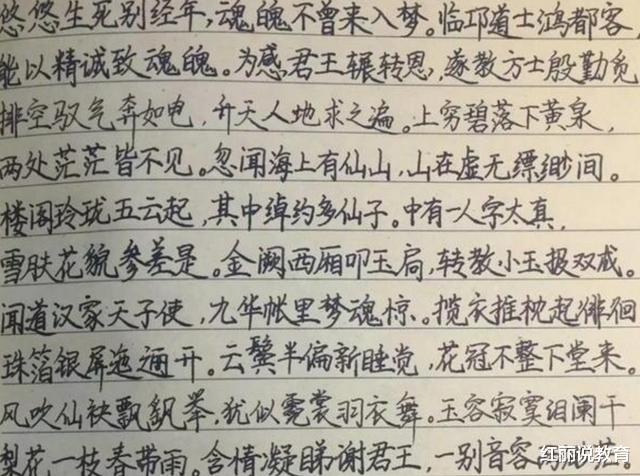 悠悠生死别经年,魂魄不曾来入梦。临邛道士鸿都客,
能以精诚致魂魄。为感君王辗转恩,遂教方士殷勤觅
排空驭气奔如电,升天入地求之遍。上穷碧落下黄泉,
两处茫茫皆不见。忽闻海上有仙山,山在虚无缥缈间。
楼阁玲珑五云起,其中绰约多仙子。中有一人字太真,
雪肤花貌参差是。金阙西厢叩玉扃,转教小玉报双成。
闻道汉家天子使,九华帐里梦魂惊。揽衣推枕起徘徊
珠箔银屏迤逦开。云鬓半偏新睡觉,花冠不整下堂来。
风吹仙袂飘飖举,犹似霓裳羽衣舞。玉容寂寞泪阑干
梨花一枝春带雨。含情凝睇谢君王,一别音容
红丽说教育